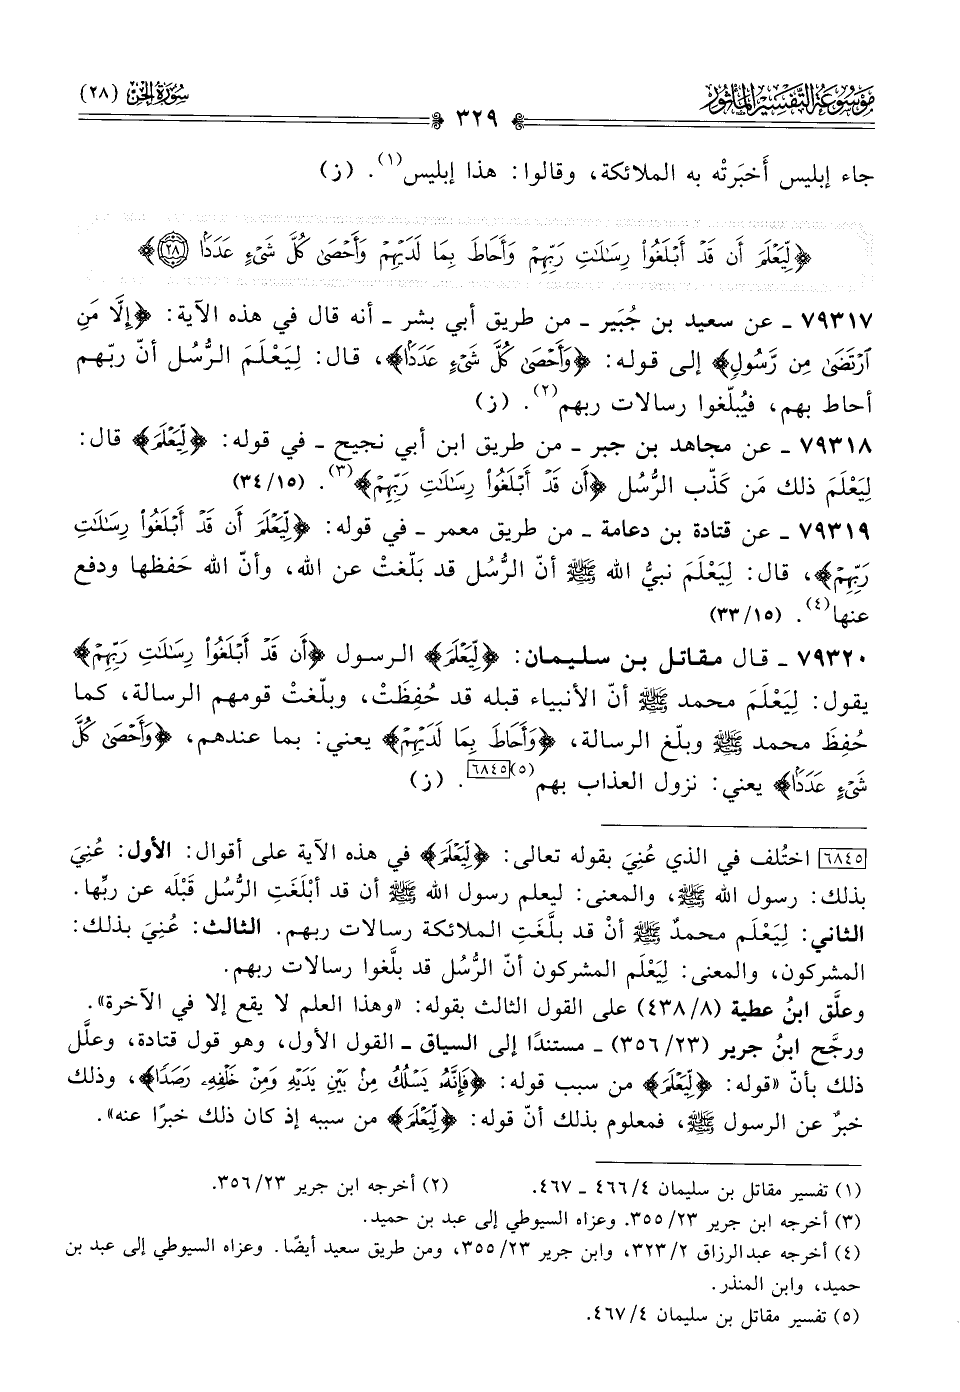 موسوعة التفسير المأثور
سورة الجن (٢٨)
٣٢٩
جاء إبليس أخبَرتْه به الملائكة، وقالوا: هذا إبليس(١). (ز)
﴿لِّيَعْلَمَ أَن قَدْ أَبْلَغُوا۟ رِسَٰلَٰتِ رَبِّهِمْ وَأَحَاطَ بِمَا لَدَيْهِمْ وَأَحْصَىٰ كُلَّ شَىْءٍ عَدَدًۢا ٢٨﴾
٧٩٣١٧ ـ عن سعيد بن جُبَير ـ من طريق أبي بشر ـ أنه قال في هذه الآية: ﴿إِلَّا مَنِ
ٱرْتَضَىٰ مِن رَّسُولٍ﴾ إلى قوله: ﴿وَأَحْصَىٰ كُلَّ شَىْءٍ عَدَدًۢا﴾، قال: لِيَعْلَمَ الرُّسُل أنّ ربّهم
أحاط بهم، فيُبلّغوا رسالات ربهم(٢). (ز)
٧٩٣١٨ ـ عن مجاهد بن جبر ـ من طريق ابن أبي نجيح ـ في قوله: ﴿لِّيَعْلَمَ﴾ قال:
لِيَعْلَمَ ذلك مَن كَذّب الرُّسُل ﴿أَن قَدْ أَبْلَغُوا۟ رِسَٰلَٰتِ رَبِّهِمْ﴾(٣). (٣٤/١٥)
٧٩٣١٩ ـ عن قتادة بن دعامة ـ من طريق معمر ـ في قوله: ﴿لِّيَعْلَمَ أَن قَدْ أَبْلَغُوا۟ رِسَٰلَٰتِ
رَبِّهِمْ﴾، قال: لِيَعْلَمَ نبيُّ الله ﷺ أنّ الرُّسُل قد بَلّغتْ عن الله، وأنّ الله حَفظها ودفع
عنها(٤). (٣٣/١٥)
٧٩٣٢٠ ـ قال مقاتل بن سليمان: ﴿لِّيَعْلَمَ﴾ الرسول ﴿أَن قَدْ أَبْلَغُوا۟ رِسَٰلَٰتِ رَبِّهِمْ﴾
يقول: لِيَعْلَمَ محمد ﷺ أنّ الأنبياء قبله قد حُفِظَتْ، وبلّغتْ قومهم الرسالة، كما
حُفِظَ محمد ﷺ وبلّغ الرسالة، ﴿وَأَحَاطَ بِمَا لَدَيْهِمْ﴾ يعني: بما عندهم، ﴿وَأَحْصَىٰ كُلَّ
شَىْءٍ عَدَدًۢا﴾ يعني: نزول العذاب بهم(٥)[٦٨٤٥]. (ز)
[٦٨٤٥] اختُلف في الذي عُنِيَ بقوله تعالى: ﴿لِّيَعْلَمَ﴾ في هذه الآية على أقوال: الأول: عُنِيَ
بذلك: رسول الله ﷺ، والمعنى: ليعلم رسول الله ﷺ أن قد أبْلَغَتِ الرُّسُل قَبْلَه عن ربِّها.
الثاني: لِيَعْلَم محمدٌ ﷺ أنْ قد بلَّغَتِ الملائكة رسالات ربهم. الثالث: عُنِيَ بذلك:
المشركون، والمعنى: لِيَعْلَم المشركون أنّ الرُّسل قد بلَّغوا رسالات ربهم.
وعلَّق ابنُ عطية (٤٣٨/٨) على القول الثالث بقوله: «وهذا العلم لا يقع إلا في الآخرة».
ورجَّح ابنُ جرير (٣٥٦/٢٣) ـ مستندًا إلى السياق ـ القول الأول، وهو قول قتادة، وعلَّل
ذلك بأنّ «قوله: ﴿لِّيَعْلَمَ﴾ من سبب قوله: ﴿فَإِنَّهُۥ يَسْلُكُ مِنۢ بَيْنِ يَدَيْهِ وَمِنْ خَلْفِهِۦ رَصَدًا﴾، وذلك
خبرٌ عن الرسول ﷺ، فمعلوم بذلك أنّ قوله: ﴿لِّيَعْلَمَ﴾ من سببه إذ كان ذلك خبرًا عنه».
(١) تفسير مقاتل بن سليمان ٤/ ٤٦٦ ـ ٤٦٧. (٢) أخرجه ابن جرير ٢٣/ ٣٥٦.
(٣) أخرجه ابن جرير ٢٣/ ٣٥٥. وعزاه السيوطي إلى عبد بن حميد.
(٤) أخرجه عبدالرزاق ٢/ ٣٢٣، وابن جرير ٢٣/ ٣٥٥، ومن طريق سعيد أيضًا. وعزاه السيوطي إلى عبد بن
حميد، وابن المنذر.
(٥) تفسير مقاتل بن سليمان ٤/ ٤٦٧.